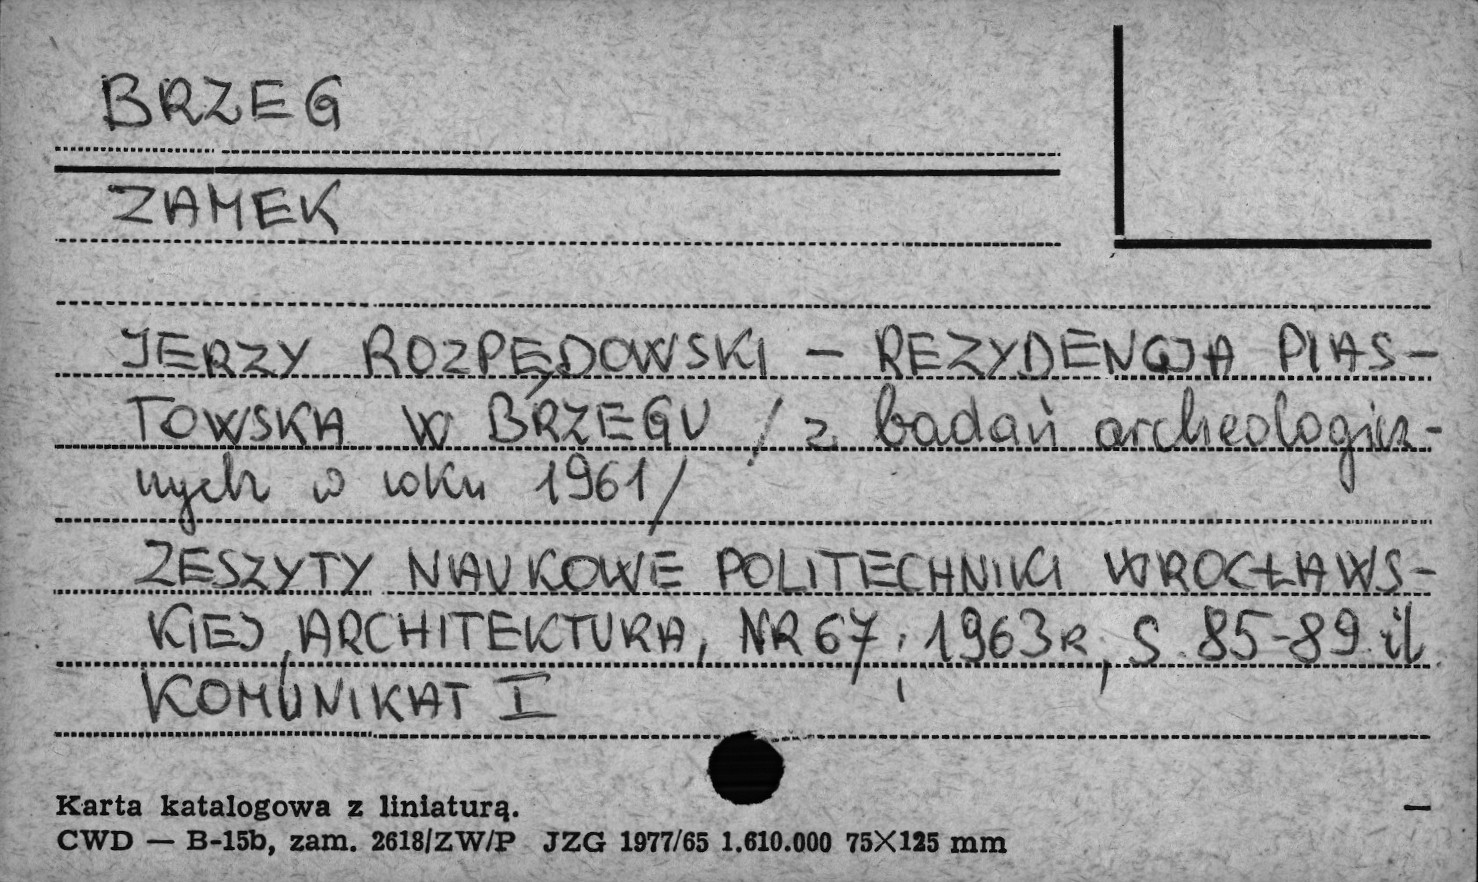 BRZEG
ZAMEK
JERZY ROZPĘDOWSKI – REZYDENCJA PIAS-
TOWSKA W BRZEGU / z badań archeologicz-
nych w roku 1961/
ZESZYTY NAUKOWE POLITECHNIKI WROCŁAWS-
KIEJ, ARCHITEKTURA, NR 67, 1963R, S. 85-89 il.
KOMUNIKAT I
Karta katalogowa z liniaturą.
CWD — B-15b, zam. 2618/ZW/P JZG 1977/65 1.610.000 75×125 mm